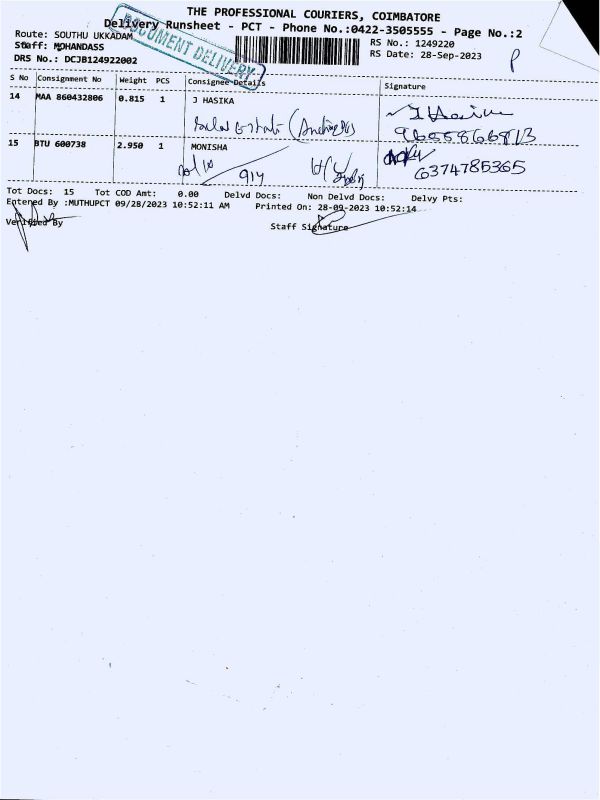 THE PROFESSIONAL COURIERS, COIMBATORE
Delivery Runsheet - PCT - Phone No.:0422-3505555 - Page No.:2
Route: SOUTHU UKKADAM
DOCUMENT DELIVERY
RS No.: 1249220
Staff: MOHANDASS
RS Date: 28-Sep-2023
P
DRS No.: DCJB124922002
S No Consignment No Weight PCS Consignee Details Signature
14 MAA 860432806 0.815 1 J HASIKA
9655866813
15 BTU 600738 2.950 1 MONISHA
914
6374785365
Tot Docs: 15 Tot COD Amt: 0.00 Delvd Docs: Non Delvd Docs: Delvy Pts:
Entered By :MUTHUPCT 09/28/2023 10:52:11 AM Printed On: 28-09-2023 10:52:14
Verified By
Staff Signature